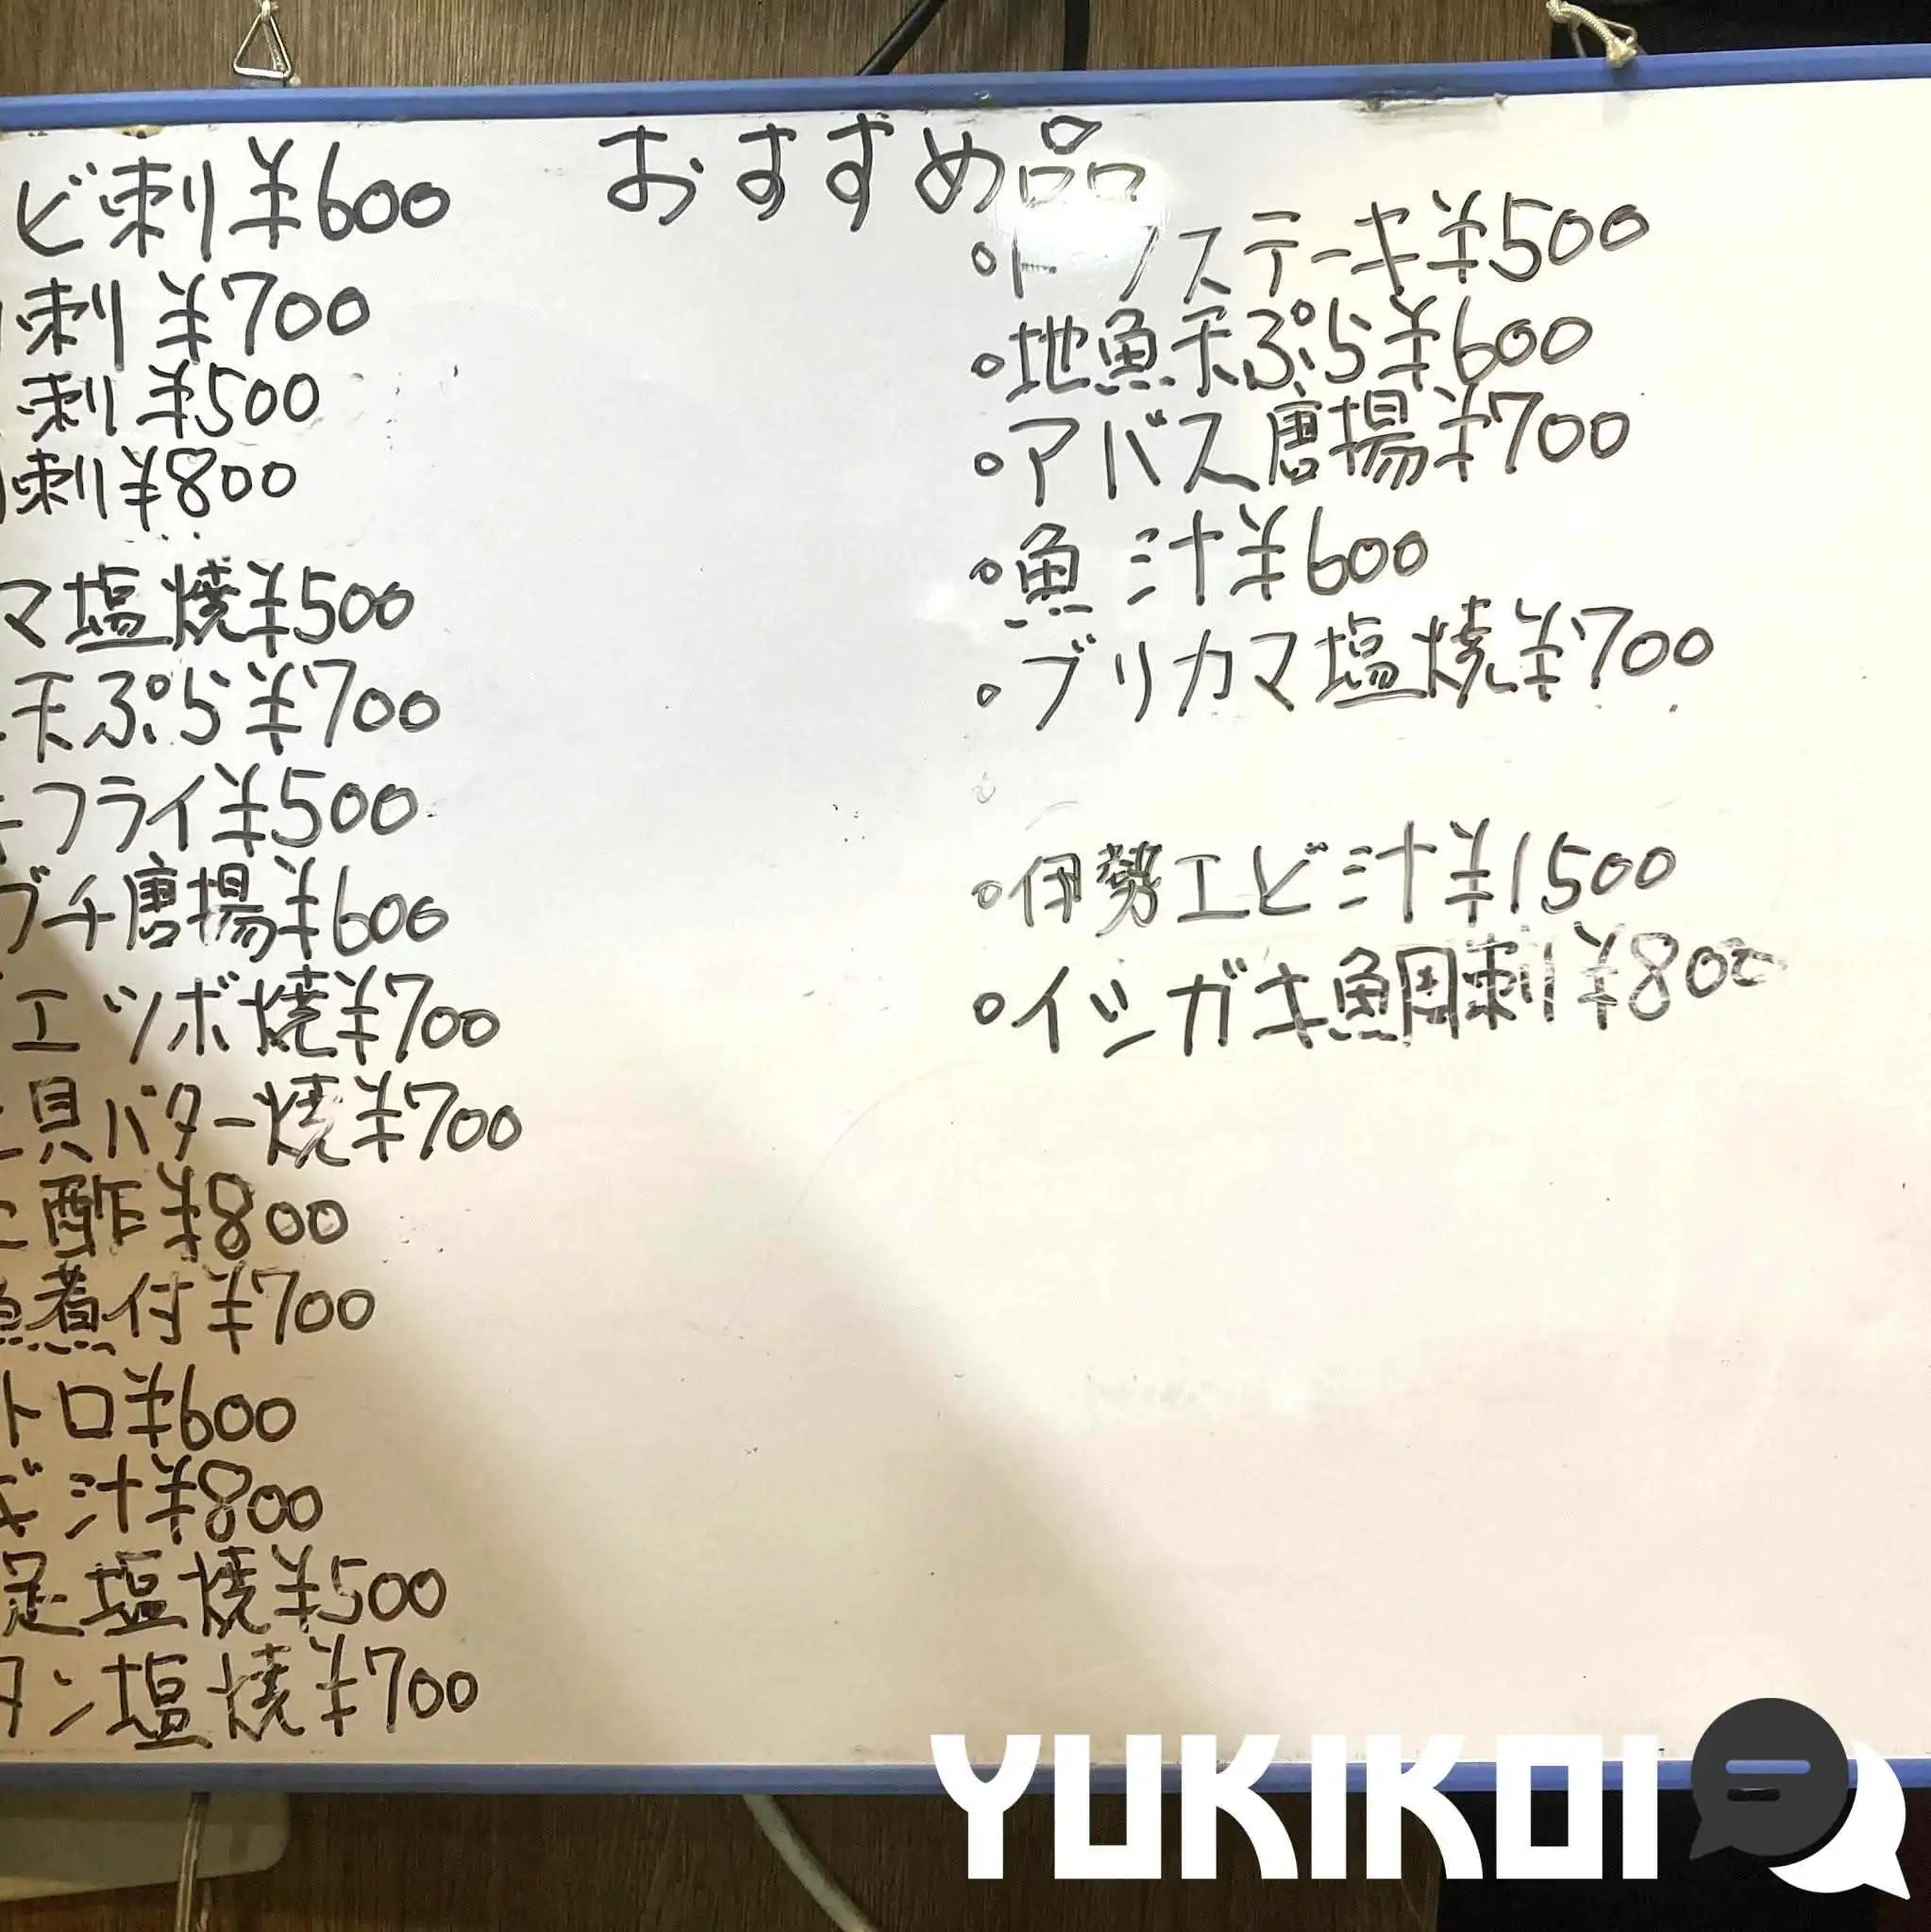 おすすめ品
ビ刺¥600
刺¥700
刺¥500
刺¥800
マ塩焼¥500
天ぷら¥700
フライ¥500
ブチ唐揚¥600
エツボ焼¥700
貝バター焼¥700
酢¥800
魚煮付¥700
トロ¥600
ギ汁¥800
足塩焼¥500
タン塩焼¥700
ステーキ¥500
地魚天ぷら¥600
アバス唐揚¥700
魚汁¥600
ブリカマ塩焼¥700
伊勢エビ汁¥1500
イシガキ鯛刺¥800
YUKIKOI